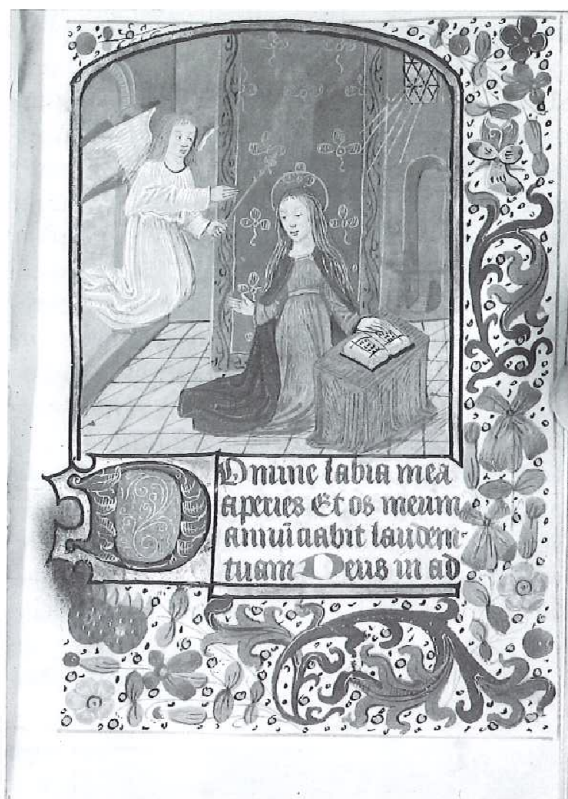 Domine labia mea
aperies Et os meum
annūciabit laudem
tuam Deus in ad